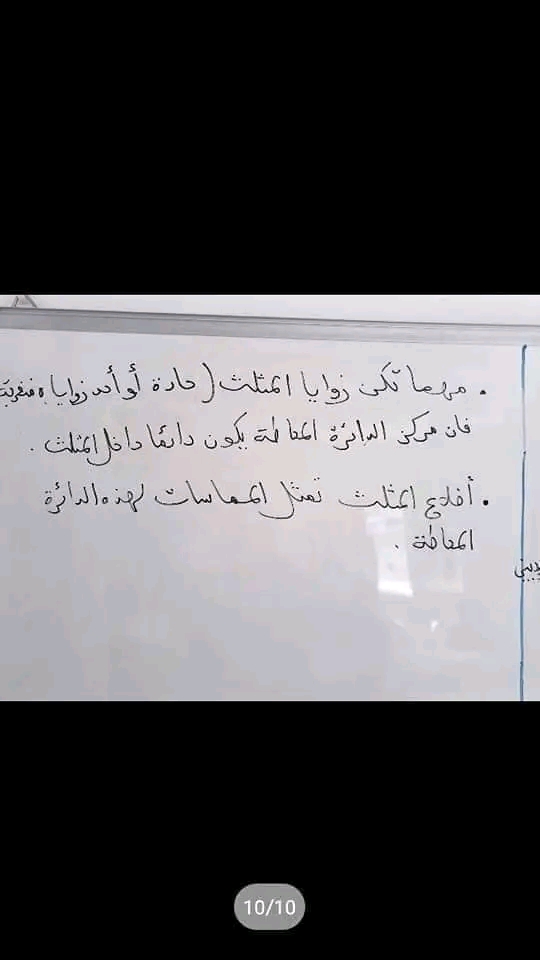 . مهما تكن زوايا المثلث (حادة أو أحد زواياه منفرجة
فان مركز الدائرة المحاطة يكون دائما داخل المثلث .
. أضلاع المثلث تمثل المماسات لهذه الدائرة
المحاطة .
10/10